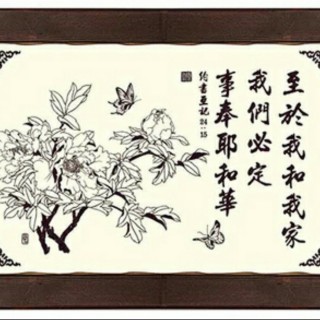 至於我和我家
我們必定
事奉耶和華
約書亞記 24:15